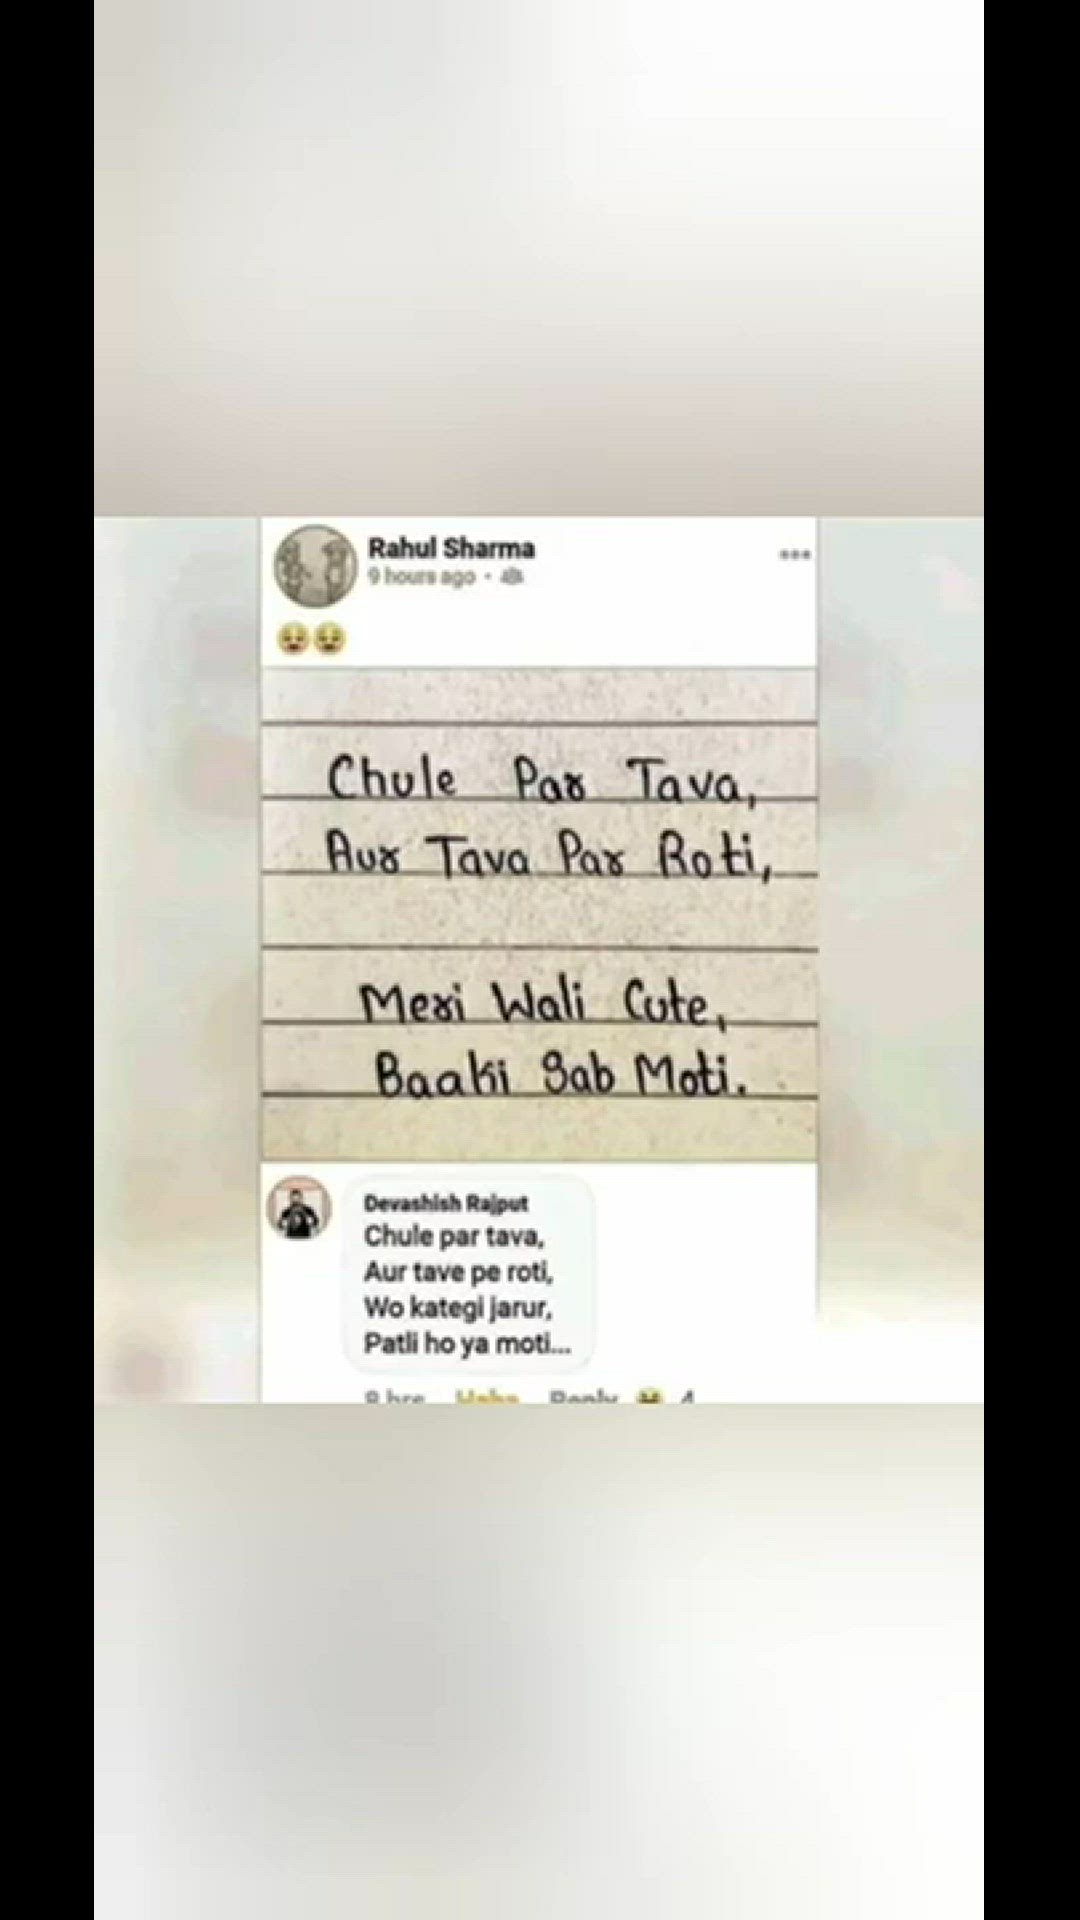 Rahul Sharma
9 hours ago
Chule Par Tava,
Aur Tava Par Roti,
Meri Wali Cute,
Baaki Sab Moti.
Devashish Rajput
Chule par tava,
Aur tave pe roti,
Wo kategi jarur,
Patli ho ya moti...
8 hrs Haha Reply 4